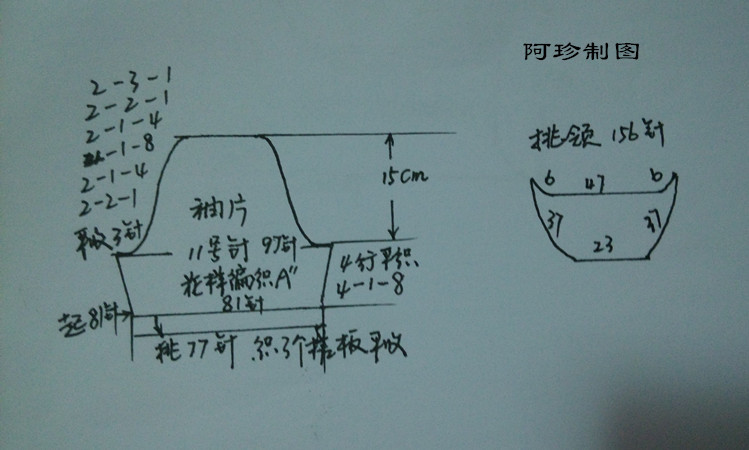 阿珍制图
2-3-1
2-2-1
2-1-4
-1-8
2-1-4
2-2-1
平收3针
15cm
袖片
11号针 97针
花样编织A"
81针
4行平织
4-1-8
起81针
挑77针 织3个 板平收
挑领 156针
6 47 6
37 37
23